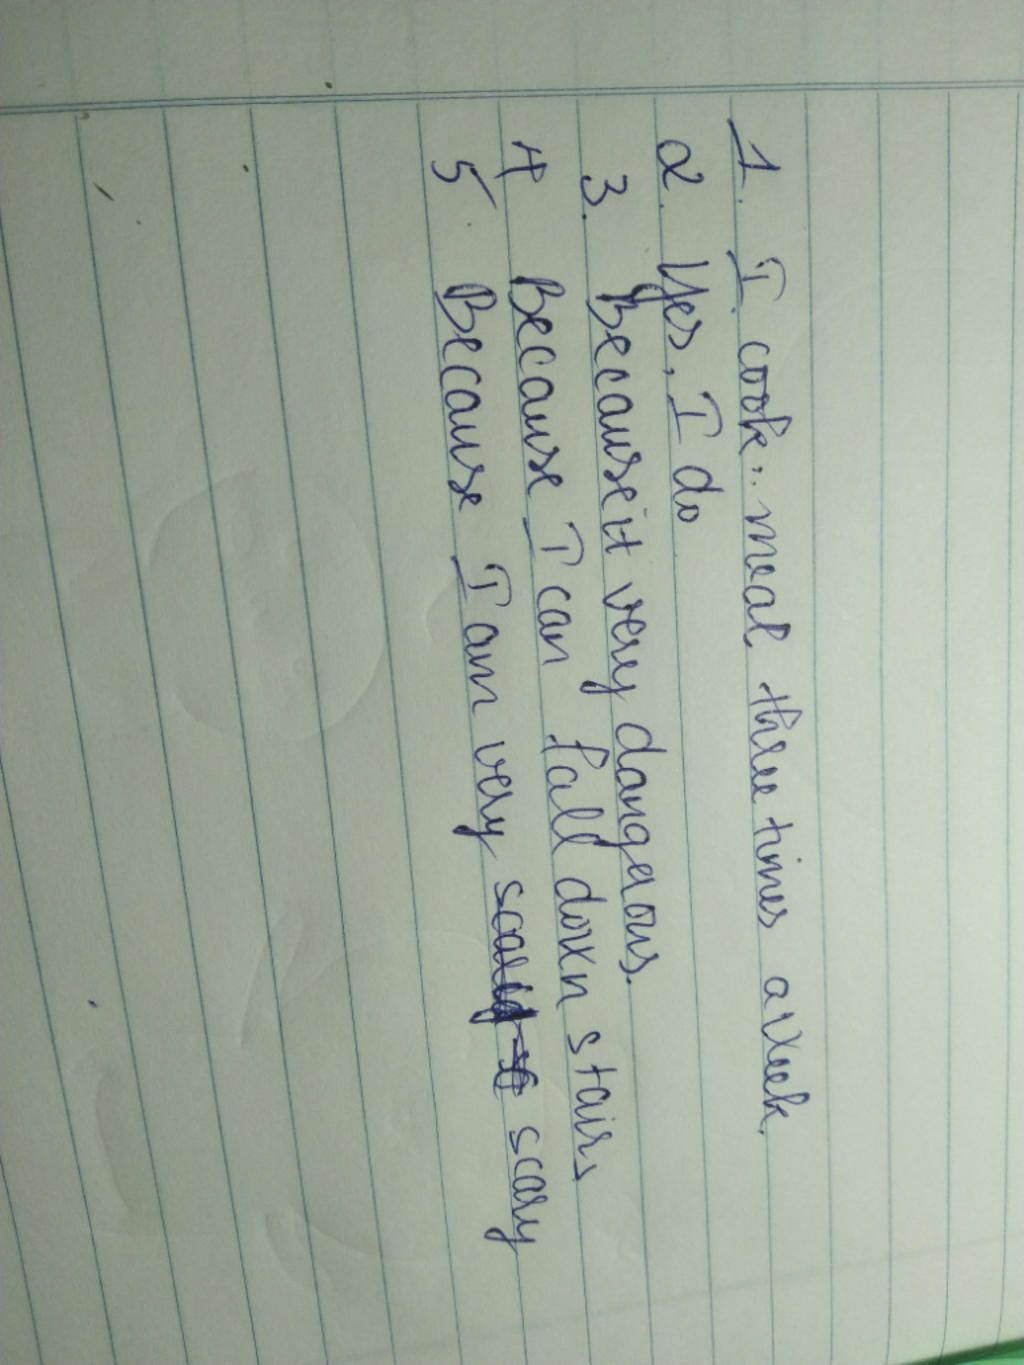 1. I cook meal three times a week.
2. Yes, I do
3. Because it very dangerous.
4 Because I can fall down stairs
5. Because I am very scary